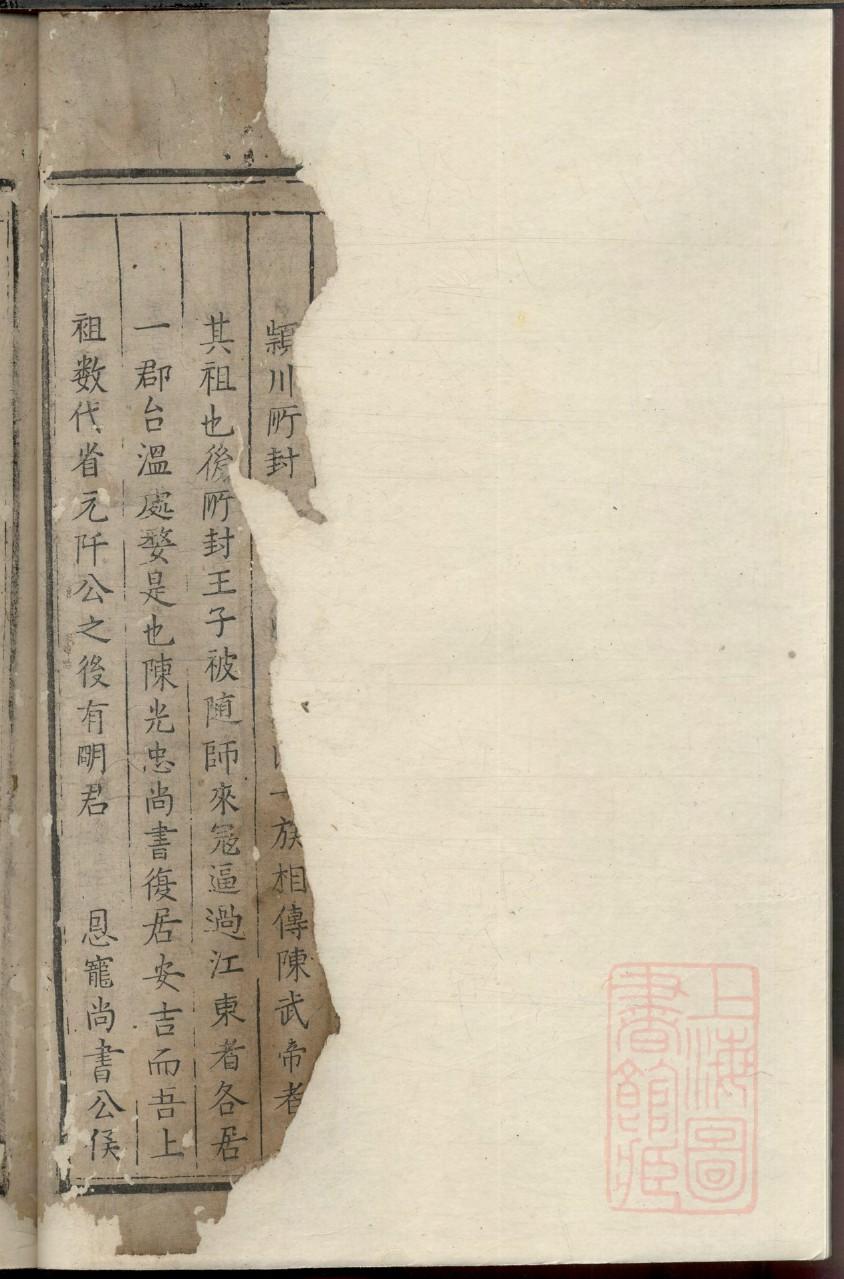 潁川所封
族相傳陳武帝者
其祖也後所封王子被随師來冦逼過江東者各居
一郡台溫處婺是也陳光忠尚書復居安吉而吾上
祖数代省元阡公之後有明君 恩寵尚書公侯
上海圖
書館藏